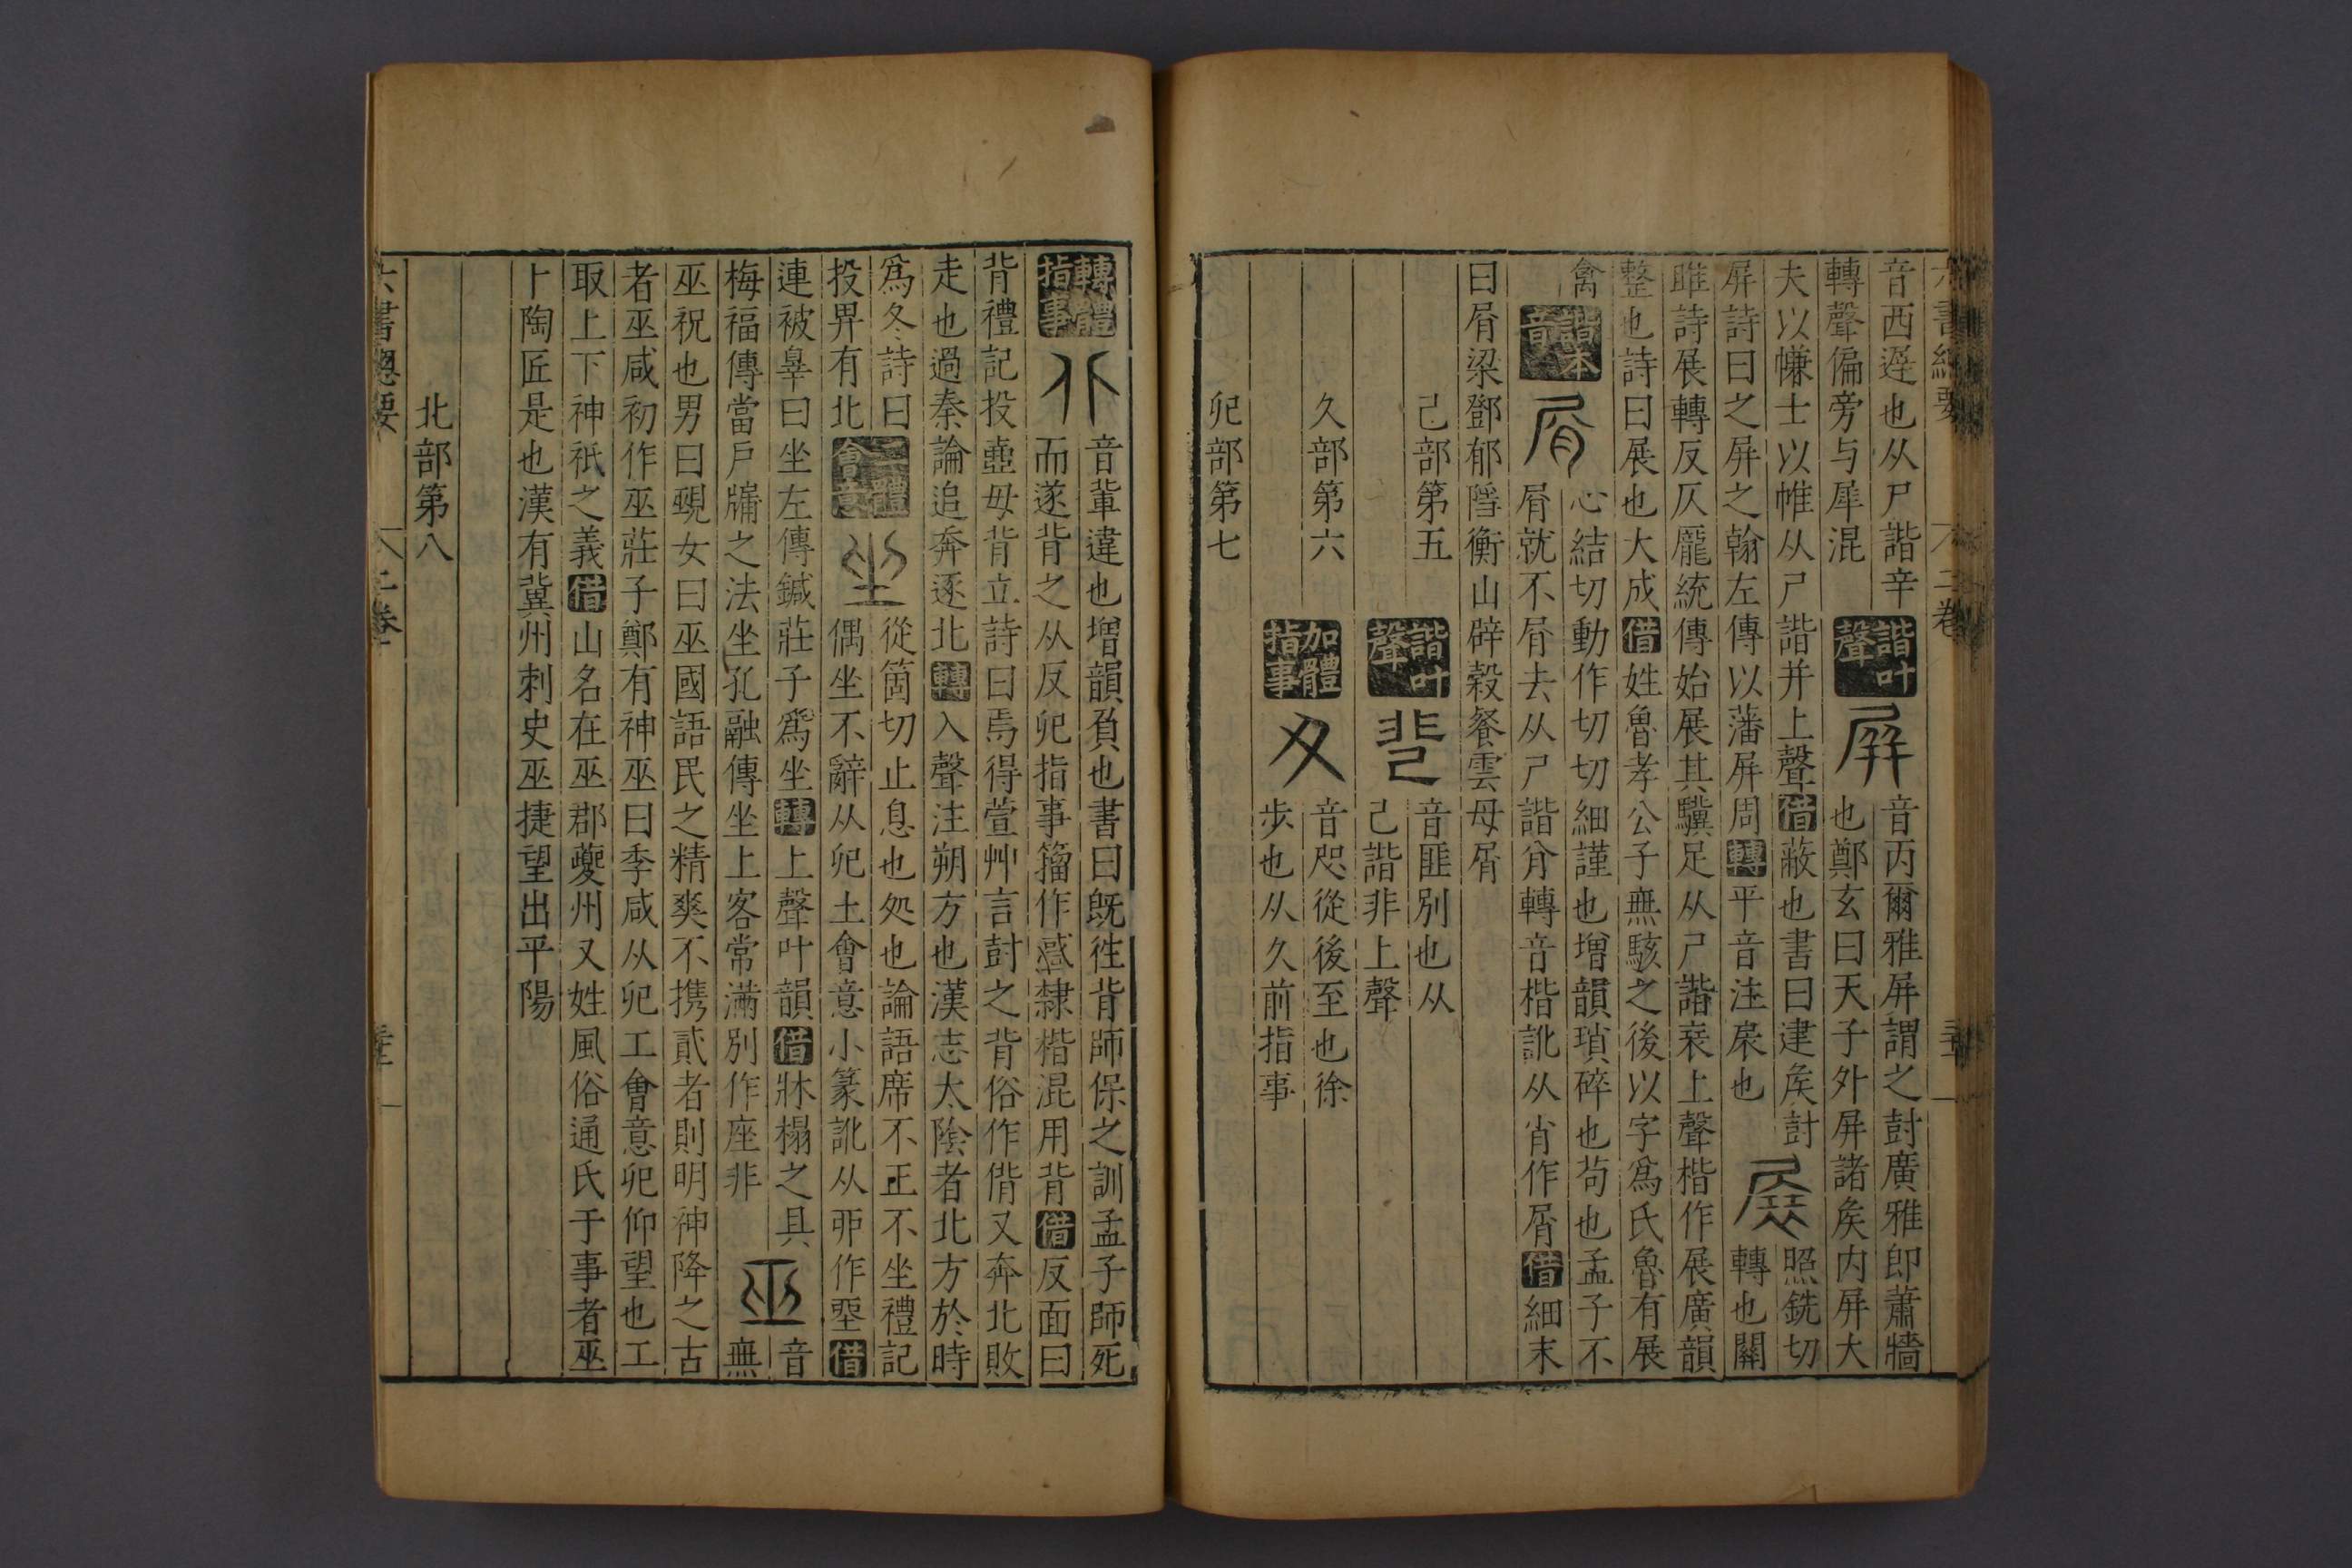 六書總要
二卷
音西遟也从尸諧辛
轉聲偏旁与犀混
諧叶聲
屛
音丙爾雅屏謂之𡔷廣雅卽蕭牆
也鄭玄曰天子外屏諸矦内屏大
夫以㡘士以帷从尸諧并上聲借蔽也書曰建矦𡔷
屏詩曰之屏之翰左傳以藩屏周轉平音注㞐也
展
照銑切
轉也關
雎詩展轉反仄龎統傳始展其驥足从尸諧㐮上聲楷作展廣韻
整也詩曰展也大成借姓魯孝公子無駭之後以字爲氏魯有展
禽
諧本音
屑
心結切動作切切細謹也增韻瑣碎也茍也孟子不
屑就不屑去从尸諧𠔁轉音楷訛从肖作屑借細末
曰屑梁鄧郁隱衡山辟榖餐雲母屑
己部第五
諧叶聲
音匪别也从
己諧非上聲
久部第六
加體指事
音咫從後至也徐
步也从久前指事
㐆部第七
轉體指事
音輩違也增韻負也書曰旣徃背師保之訓孟子師死
而遂背之从反㐆指事籀作𢡃隸楷混用背借反面曰
背禮記投壼毋背立詩曰焉得萱艸言𡔷之背俗作偝又奔北敗
走也過秦論追奔逐北轉入聲注朔方也漢志太陰者北方於時
爲冬詩曰
投畀有北
二體會意
坐
從箇切止息也処也論語席不正不坐禮記
偶坐不辭从㐆土會意小篆訛从丣作坙借
連被辠曰坐左傳鍼莊子爲坐轉上聲叶韻借牀榻之具
梅福傳當戶牖之法坐孔融傳坐上客常滿別作座非
巫
音
無
巫祝也男曰覡女曰巫國語民之精爽不携貳者則明神降之古
者巫咸初作巫莊子鄭有神巫曰季咸从㐆工會意㐆仰望也工
取上下神祇之義借山名在巫郡夔州又姓風俗通氏于事者巫
卜陶匠是也漢有冀州刺史巫捷望出平陽
北部第八
六書總要
二卷